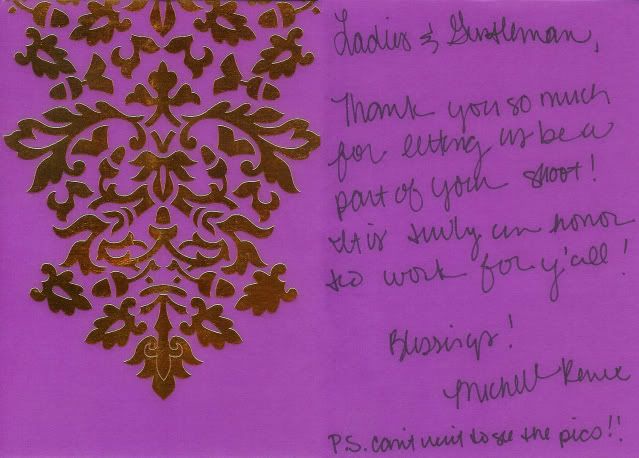 Ladies & Gentleman,
Thank you so much
for letting us be a
part of your shoot!
It is truly an honor
to work for y'all!
Blessings!
Michelle Renee
P.S. can't wait to see the pics!!